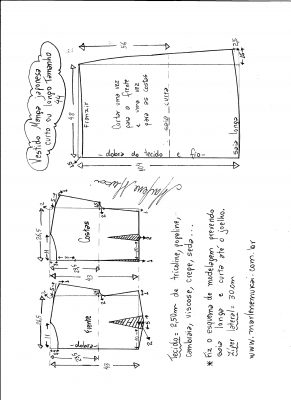 Vestido Manga japonesa
curto ou longo Tamanho
44
56
2,5
Franzir
48
Cortar uma vez
para a frente
e uma vez
para as costas
saia curta
saia longa
- dobra do tecido e fio -
110
Marlene Mukai
Costas
26,5
43
frente
26,5
11
43
Tecido = 2,50m de tricoline, popeline,
cambraia, viscose, crepe, seda...
* Fiz o esquema de modelagem prevendo
saia longa e curta até o joelho.
Zíper lateral = 30cm
www.marlenemukai.com.br